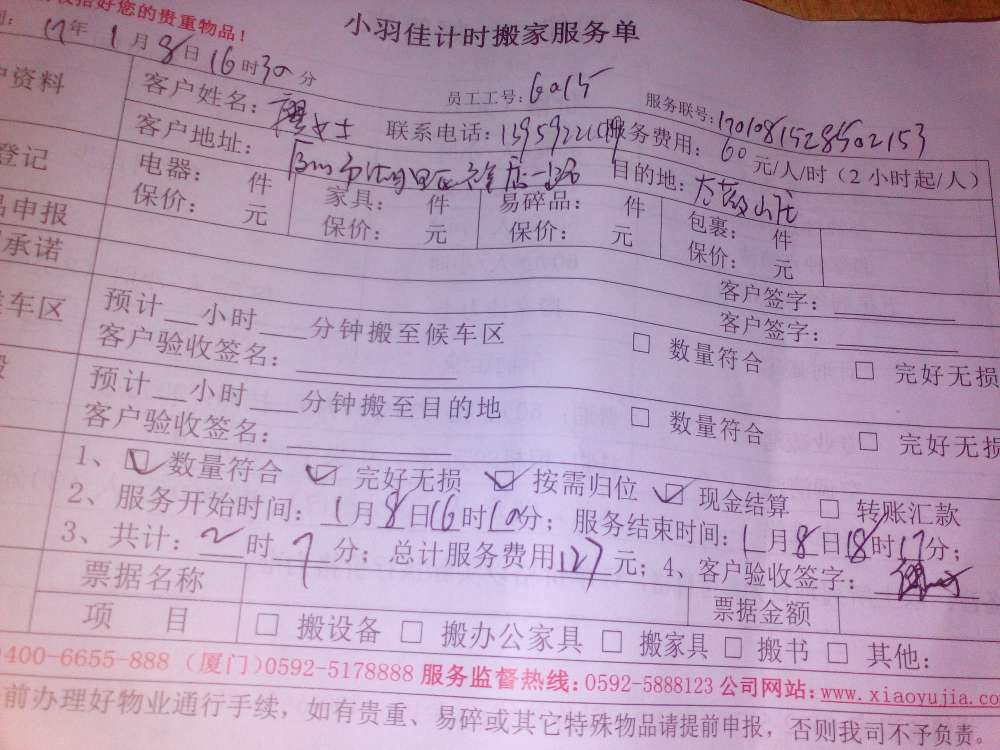 好您的贵重物品!
小羽佳计时搬家服务单
17年1月8日16时30分
员工工号:6015
服务联号:1701081528502153
户资料
客户姓名: 女士 联系电话: 服务费用:60元/人/时(2小时起/人)
客户地址: 目的地:
登记
电器: 件 家具: 件 易碎品: 件 包裹: 件
品申报
保价: 元 保价: 元 保价: 元 保价: 元
承诺
客户签字:
客户签字:
车区
预计__小时___分钟搬至候车区 □ 数量符合 □ 完好无损
客户验收签名:
预计__小时___分钟搬至目的地 □ 数量符合 □ 完好无损
客户验收签名:
1、☑ 数量符合 ☑ 完好无损 ☑ 按需归位 ☑ 现金结算 □ 转账汇款
2、服务开始时间:1月8日16时10分;服务结束时间:1月8日18时17分;
3、共计:2时7分;总计服务费用127元;4、客户验收签字:
票据名称 票据金额
项 目 □ 搬设备 □ 搬办公家具 □ 搬家具 □ 搬书 □ 其他:
400-6655-888(厦门)0592-5178888 服务监督热线:0592-5888123 公司网站:www.xiaoyujia.co
前办理好物业通行手续,如有贵重、易碎或其它特殊物品请提前申报,否则我司不予负责。